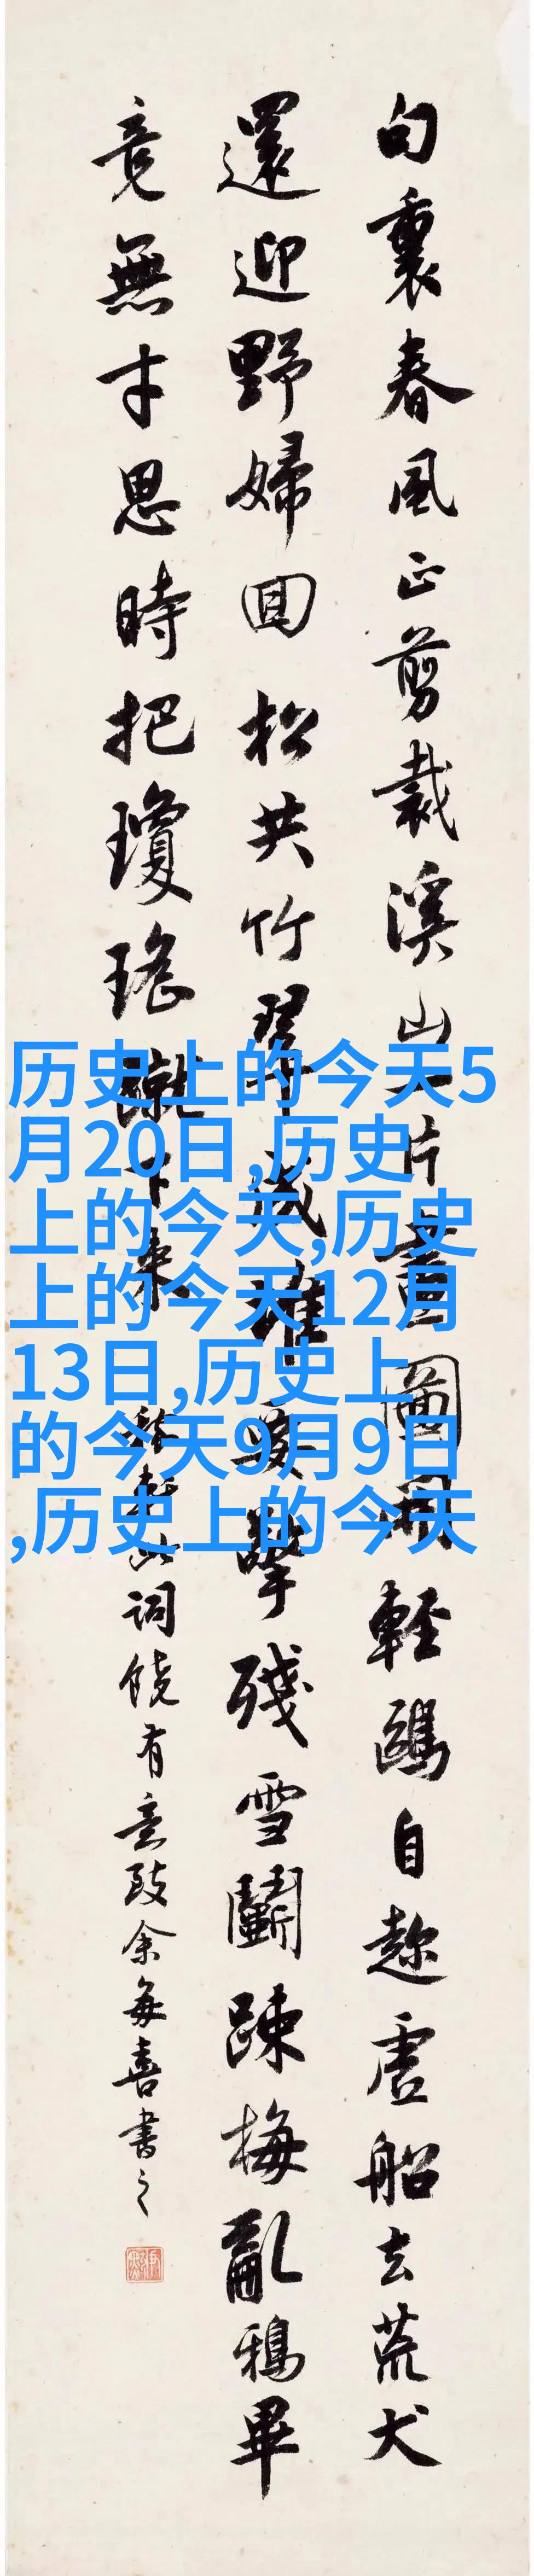 句裏春風正剪裁溪山一片畫圖開輕鷗自趂虛船去荒犬
還迎野婦回松共竹翠成堆要擎殘雪鬭踈梅亂鴉畢
竟無才思時把瓊瑤蹴下來
稼軒此詞饒有意致余每喜書之
历史上的今天5
月20日,历史
上的今天,历史
上的今天12月
13日,历史上
的今天9月9日
,历史上的今天